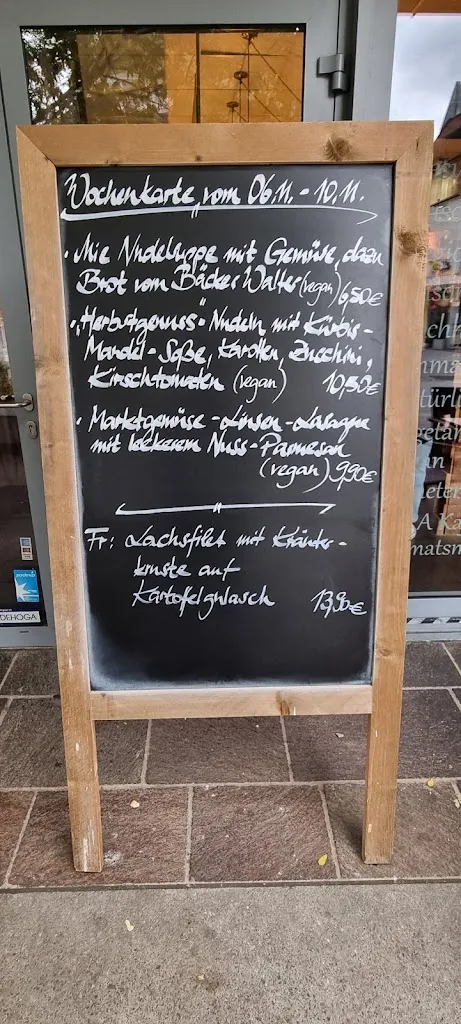 Wochenkarte vom 06.11. - 10.11.
• Mie Nudelsuppe mit Gemüse, dazu
Brot vom Bäcker Walter (vegan) 6,50€
• "Herbstgenuss"- Nudeln mit Kürbis-
Mandel-Soße, Karotten, Zucchini,
Kirschtomaten (vegan) 10,50€
• Marktgemüse-Linsen-Lasagne
mit leckerem Nuss-Parmesan
(vegan) 9,90€
Fr: Lachsfilet mit Kräuter-
kruste auf
Kartofelgulasch 13,90€
DEHOGA